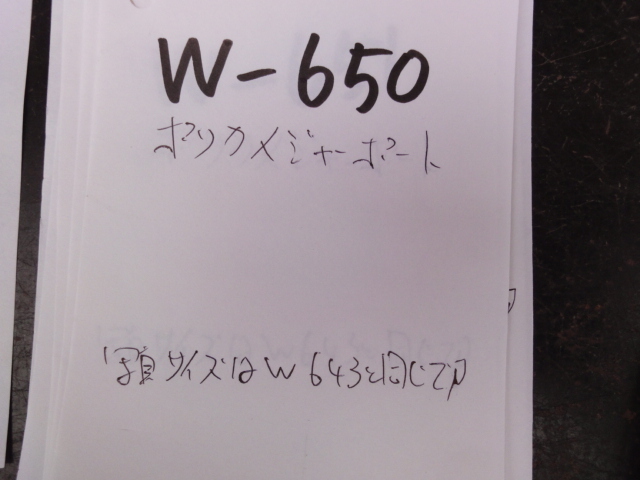 W-650
ポリカメジャーボート
写真サイズはW643と同じです